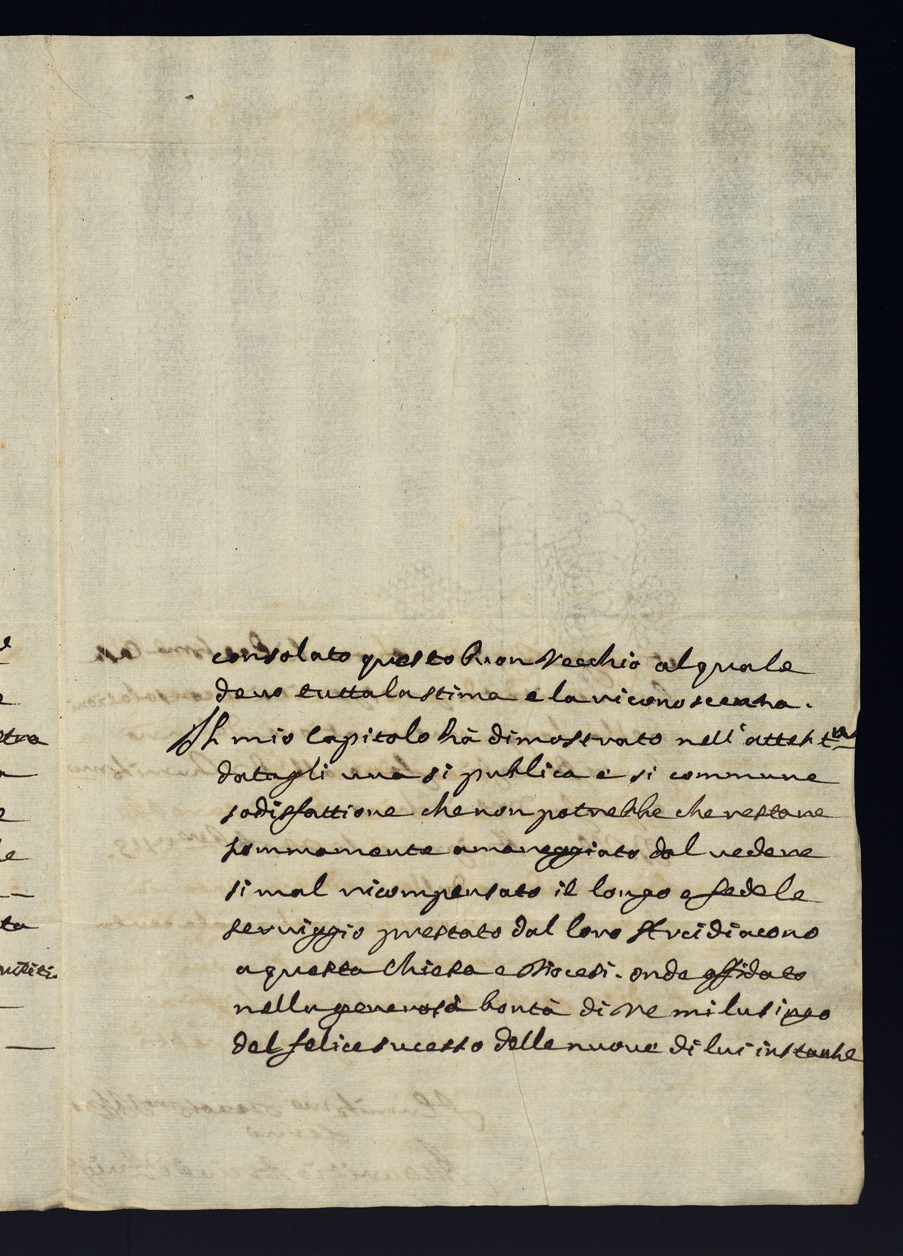 consolato questo buon Vecchio al quale
devo tutta la stima e la riconoscenza.
Il mio Capitolo hà dimostrato nell'
datagli una si publica e si commune
sodisfattione che non potrebbe che restare
sommamente amareggiato dal vedere
si mal ricompensato il longo e fedele
serviggio prestato dal loro Arcidiacono
a questa Chiesa e Diocesi. onde affidato
nella generosa bontà di Ve mi lusingo
del felice sucesso delle nuove di lui instanze